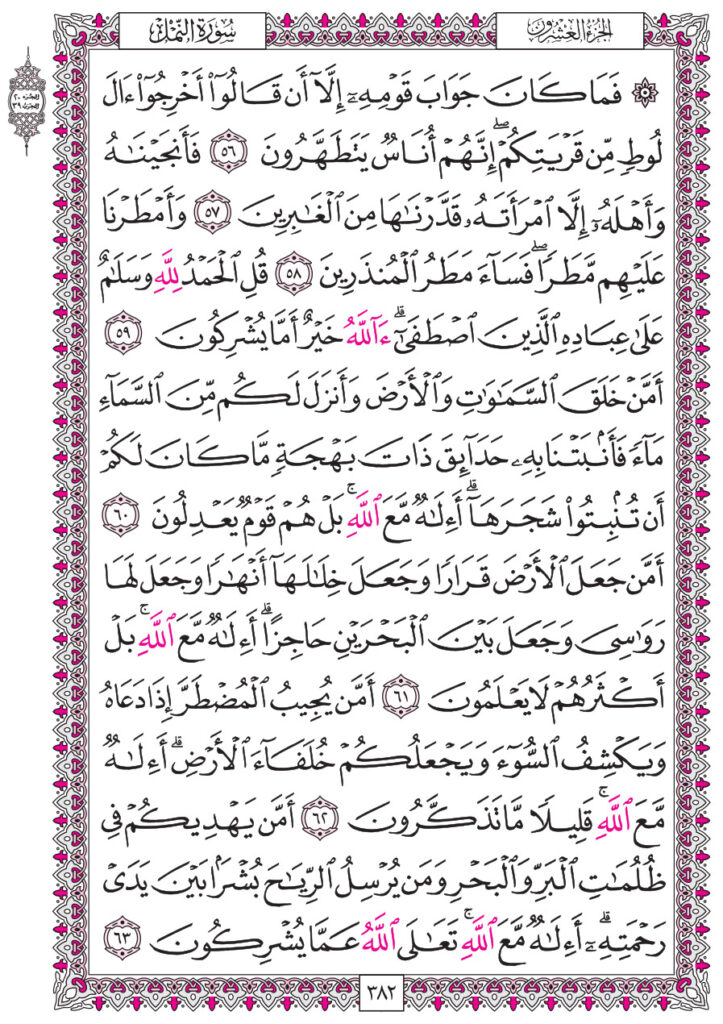 الجُزءُ العِشْرُونَ
سُورَةُ النَّمْلِ
الجزء ٢٠
الحزب ٣٩
۞ فَمَا كَانَ جَوَابَ قَوْمِهِۦٓ إِلَّآ أَن قَالُوٓا۟ أَخْرِجُوٓا۟ ءَالَ
لُوطٍ مِّن قَرْيَتِكُمْ ۖ إِنَّهُمْ أُنَاسٌ يَتَطَهَّرُونَ ٥٦ فَأَنجَيْنَٰهُ
وَأَهْلَهُۥٓ إِلَّا ٱمْرَأَتَهُۥ قَدَّرْنَٰهَا مِنَ ٱلْغَٰبِرِينَ ٥٧ وَأَمْطَرْنَا
عَلَيْهِم مَّطَرًا ۖ فَسَآءَ مَطَرُ ٱلْمُنذَرِينَ ٥٨ قُلِ ٱلْحَمْدُ لِلَّهِ وَسَلَٰمٌ
عَلَىٰ عِبَادِهِ ٱلَّذِينَ ٱصْطَفَىٰٓ ۗ ءَآللَّهُ خَيْرٌ أَمَّا يُشْرِكُونَ ٥٩
أَمَّنْ خَلَقَ ٱلسَّمَٰوَٰتِ وَٱلْأَرْضَ وَأَنزَلَ لَكُم مِّنَ ٱلسَّمَآءِ
مَآءً فَأَنۢبَتْنَا بِهِۦ حَدَآئِقَ ذَاتَ بَهْجَةٍ مَّا كَانَ لَكُمْ
أَن تُنۢبِتُوا۟ شَجَرَهَآ ۗ أَءِلَٰهٌ مَّعَ ٱللَّهِ ۚ بَلْ هُمْ قَوْمٌ يَعْدِلُونَ ٦٠
أَمَّن جَعَلَ ٱلْأَرْضَ قَرَارًا وَجَعَلَ خِلَٰلَهَآ أَنْهَٰرًا وَجَعَلَ لَهَا
رَوَٰسِىَ وَجَعَلَ بَيْنَ ٱلْبَحْرَيْنِ حَاجِزًا ۗ أَءِلَٰهٌ مَّعَ ٱللَّهِ ۚ بَلْ
أَكْثَرُهُمْ لَا يَعْلَمُونَ ٦١ أَمَّن يُجِيبُ ٱلْمُضْطَرَّ إِذَا دَعَاهُ
وَيَكْشِفُ ٱلسُّوٓءَ وَيَجْعَلُكُمْ خُلَفَآءَ ٱلْأَرْضِ ۗ أَءِلَٰهٌ
مَّعَ ٱللَّهِ ۚ قَلِيلًا مَّا تَذَكَّرُونَ ٦٢ أَمَّن يَهْدِيكُمْ فِى
ظُلُمَٰتِ ٱلْبَرِّ وَٱلْبَحْرِ وَمَن يُرْسِلُ ٱلرِّيَٰحَ بُشْرًۢا بَيْنَ يَدَىْ
رَحْمَتِهِۦٓ ۗ أَءِلَٰهٌ مَّعَ ٱللَّهِ ۚ تَعَٰلَى ٱللَّهُ عَمَّا يُشْرِكُونَ ٦٣
٣٨٢